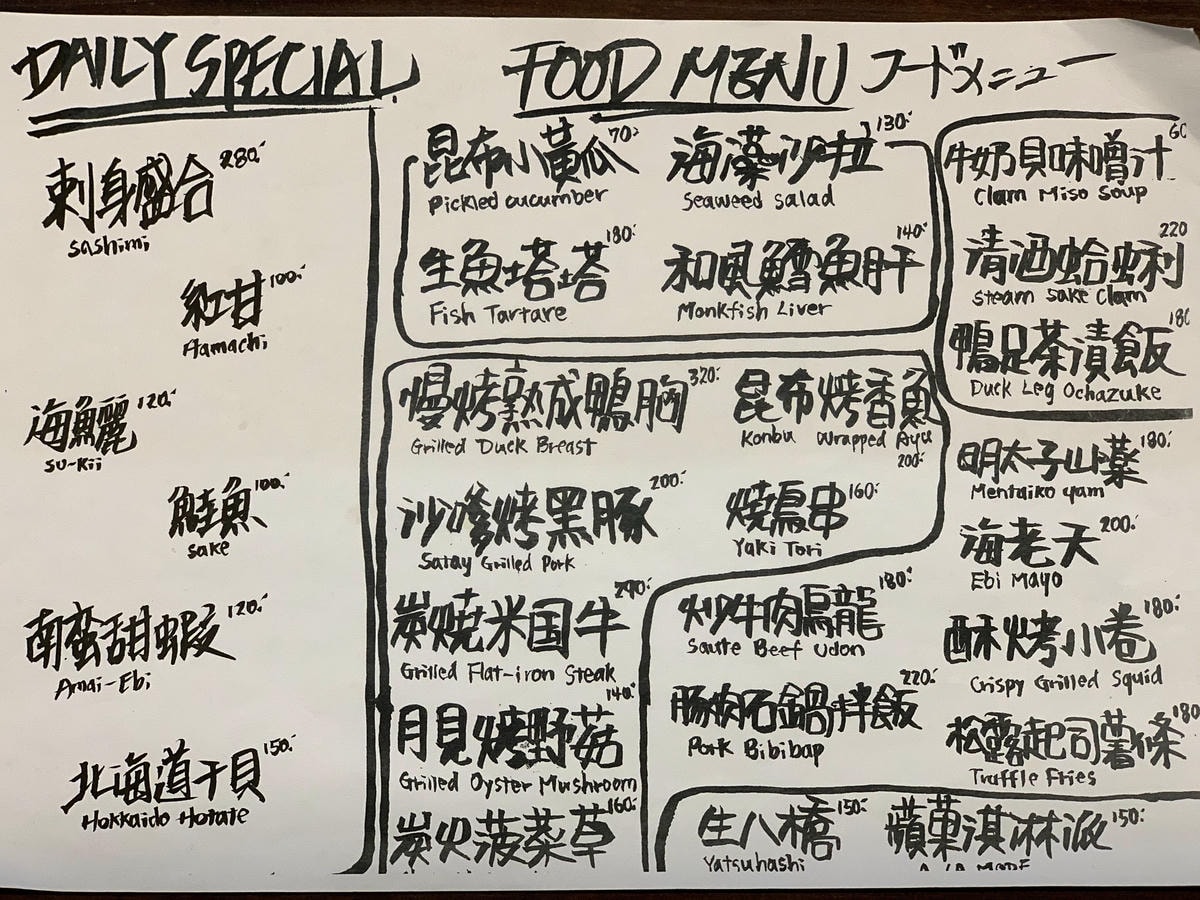 DAILY SPECIAL
刺身盛合 280.-
Sashimi
紅甘 100.-
Hamachi
海魚麗 120.-
Su-Kii
鮭魚 100.-
Sake
南蛮甜蝦 120.-
Amai-Ebi
北海道干貝 150.-
Hokkaido Hotate
FOOD MENU フードメニュー
昆布小黃瓜 70.-
Pickled cucumber
海藻沙拉 130.-
Seaweed salad
生魚塔塔 180.-
Fish Tartare
和風鱈魚肝 140.-
Monkfish Liver
慢烤熟成鴨胸 320.-
Grilled Duck Breast
昆布烤香魚
Konbu Wrapped Ayu
200.-
沙嗲烤黑豚 200.-
Satay Grilled Pork
燒鳥串 160.-
Yaki Tori
炭燒米国牛 290.-
Grilled Flat-iron Steak
月見烤野菇 140.-
Grilled Oyster Mushroom
炭火菠菜草 160.-
炒牛肉烏龍 180.-
Saute Beef Udon
豚肉石鍋拌飯 220.-
Pork Bibibap
牛奶貝味噌汁 60
Clam Miso Soup
清酒蛤蜊 220
Steam Sake Clam
鴨足茶漬飯 180
Duck Leg Ochazuke
明太子山藥 180.-
Mentaiko yam
海老天 200.-
Ebi Mayo
酥烤小卷 180.-
Crispy Grilled Squid
松露起司薯條 180
Truffle Fries
生八橋 150.-
Yatsuhashi
蘋菓淇淋派 150.-